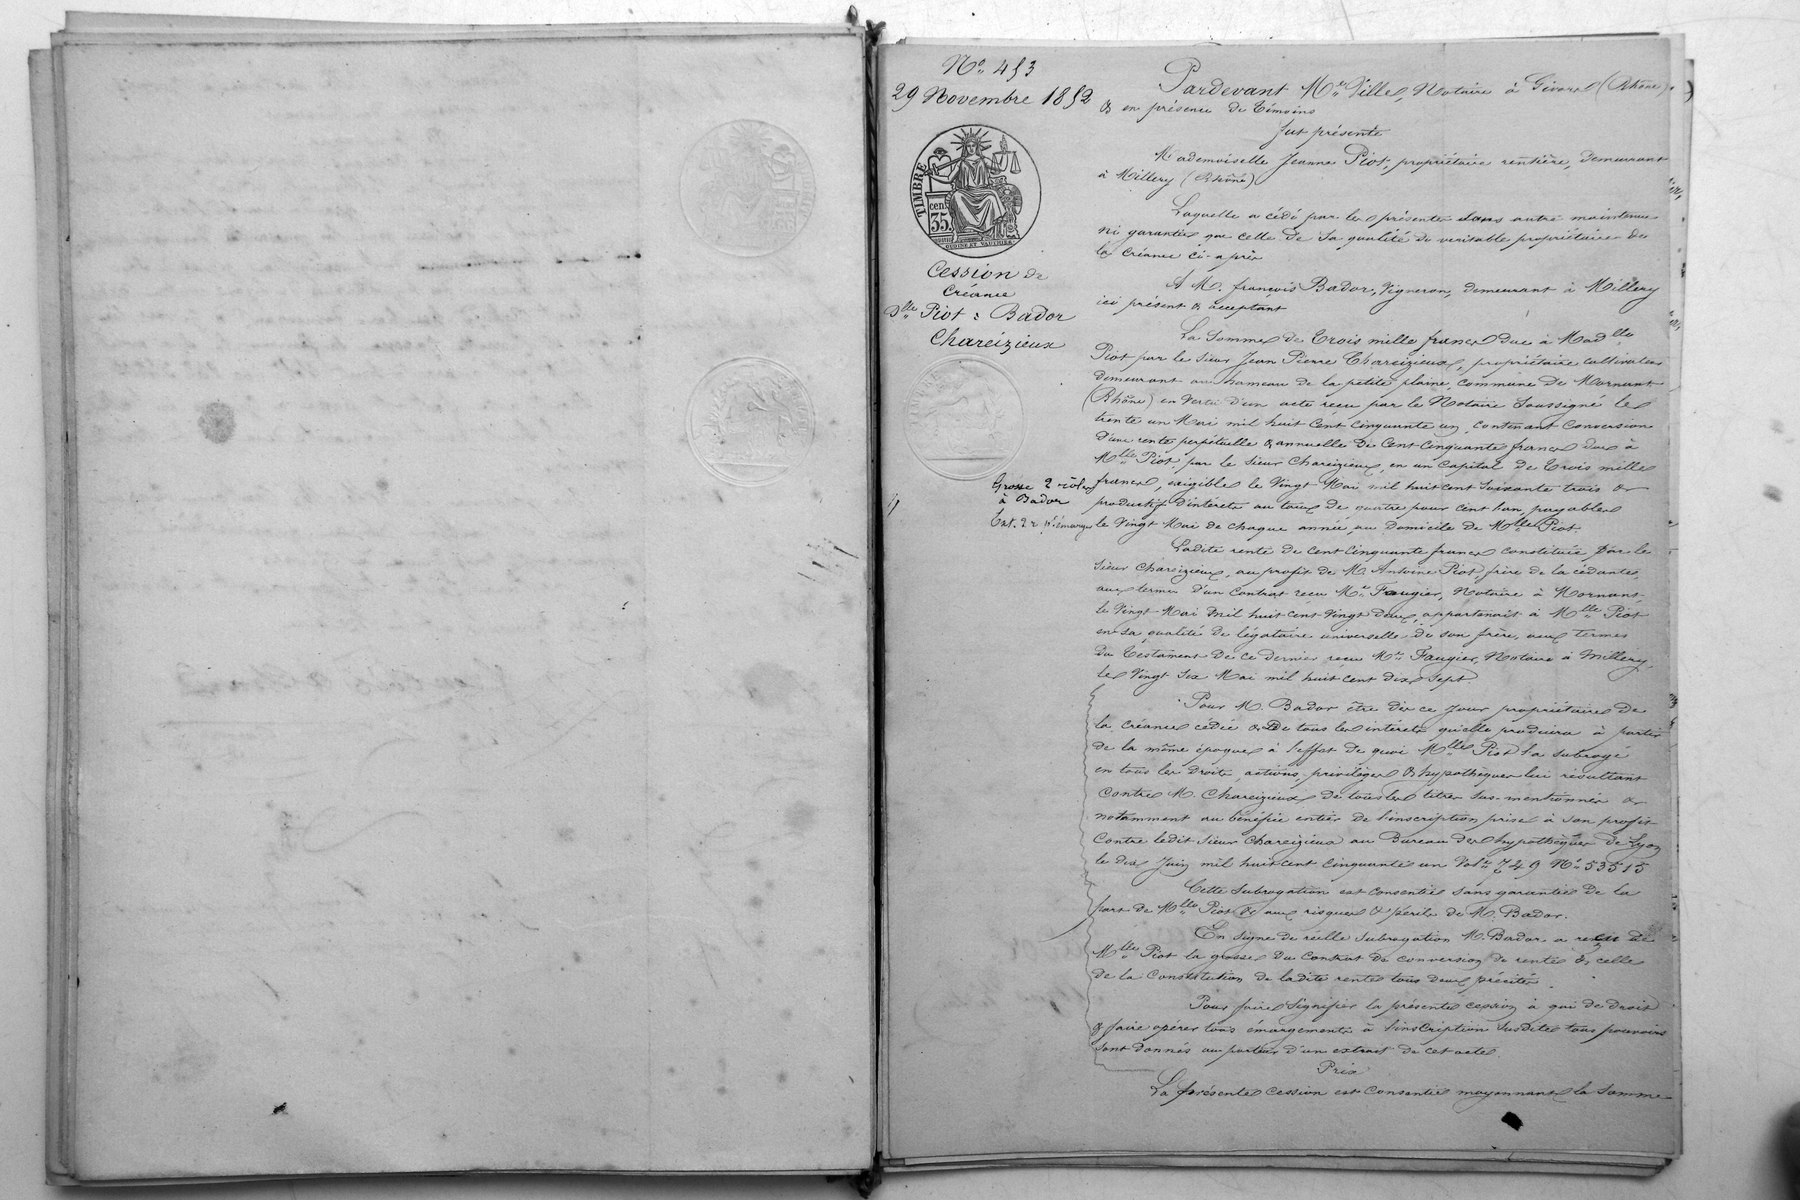 No. 453
29 Novembre 1852
TIMBRE
cent.
35.
Cession de
Créance
Dlle Piot : Bador
Chareizieux
Grosse 2 rôles
à Bador
Pardevant Me Ville, Notaire à Givors (Rhône)
& en présence de témoins
fut présente
Mademoiselle Jeanne Piot, propriétaire rentière, demeurant
à Millery (Rhône)
Laquelle a cédé par les présentes sans autre maintenue
ni garantie que celle de sa qualité de véritable propriétaire de
la créance ci-après
A M. françois Bador, Vigneron, demeurant à Millery
ici présent & acceptant
La Somme de trois mille francs due à Madlle
Piot par le Sieur Jean Pierre Chareizieux, propriétaire cultivateur
demeurant au hameau de la petite plaine, commune de Mornant
(Rhône) en vertu d'un acte reçu par le Notaire soussigné le
trente un Mai mil huit cent cinquante un, contenant conversion
d'une rente perpétuelle & annuelle de cent cinquante francs due à
Mlle Piot, par le Sieur Chareizieux, en un capital de trois mille
francs, exigible le vingt Mai mil huit cent soixante trois &
productif d'intérêts au taux de quatre pour cent l'an, payables
le vingt Mai de chaque année, au domicile de Mlle Piot.
Ladite rente de cent cinquante francs constituée par le
Sieur Chareizieux, au profit de M. Antoine Piot, frère de la cédante,
aux termes d'un contrat reçu Me Faugier, Notaire à Mornant
le vingt Mai mil huit cent vingt deux, appartenait à Mlle Piot
en sa qualité de légataire universelle de son frère, aux termes
du testament de ce dernier reçu Me Faugier, Notaire à Millery,
le vingt six Mai mil huit cent dix sept.
Pour M. Bador être dès ce jour propriétaire de
la créance cédée & de tous les intérêts qu'elle produira à partir
de la même époque à l'effet de quoi Mlle Piot l'a subrogé
en tous les droits, actions, privilèges & hypothèques lui résultant
contre M. Chareizieux de tous les titres sus-mentionnés &
notamment au bénéfice entier de l'inscription prise à son profit
contre ledit Sieur Chareizieux au Bureau des hypothèques de Lyon
le dix Juin mil huit cent cinquante un Vol. 749 No. 53515
Cette subrogation est consentie sans garantie de la
part de Mlle Piot & aux risques & périls de M. Bador.
En signe de réelle subrogation M. Bador a reçu de
Mlle Piot la grosse du Contrat de conversion de rente & celle
de la Constitution de ladite rente tous deux précités.
Pour faire signifier la présente cession à qui de droit
& faire opérer tous émargements à l'inscription susdite tous pouvoirs
sont donnés au porteur d'un extrait de cet acte.
Prix
La présente cession est consentie moyennant la somme